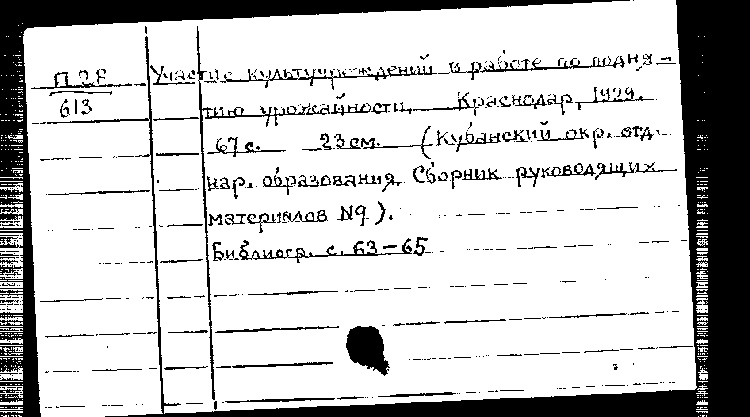 П 28 Участие культучреждений в работе по подня-
613 тию урожайности. Краснодар, 1929.
67 с. 23 см. (Кубанский окр. отд.
нар. образования. Сборник руководящих
материалов №9).
Библиогр. с. 63-65